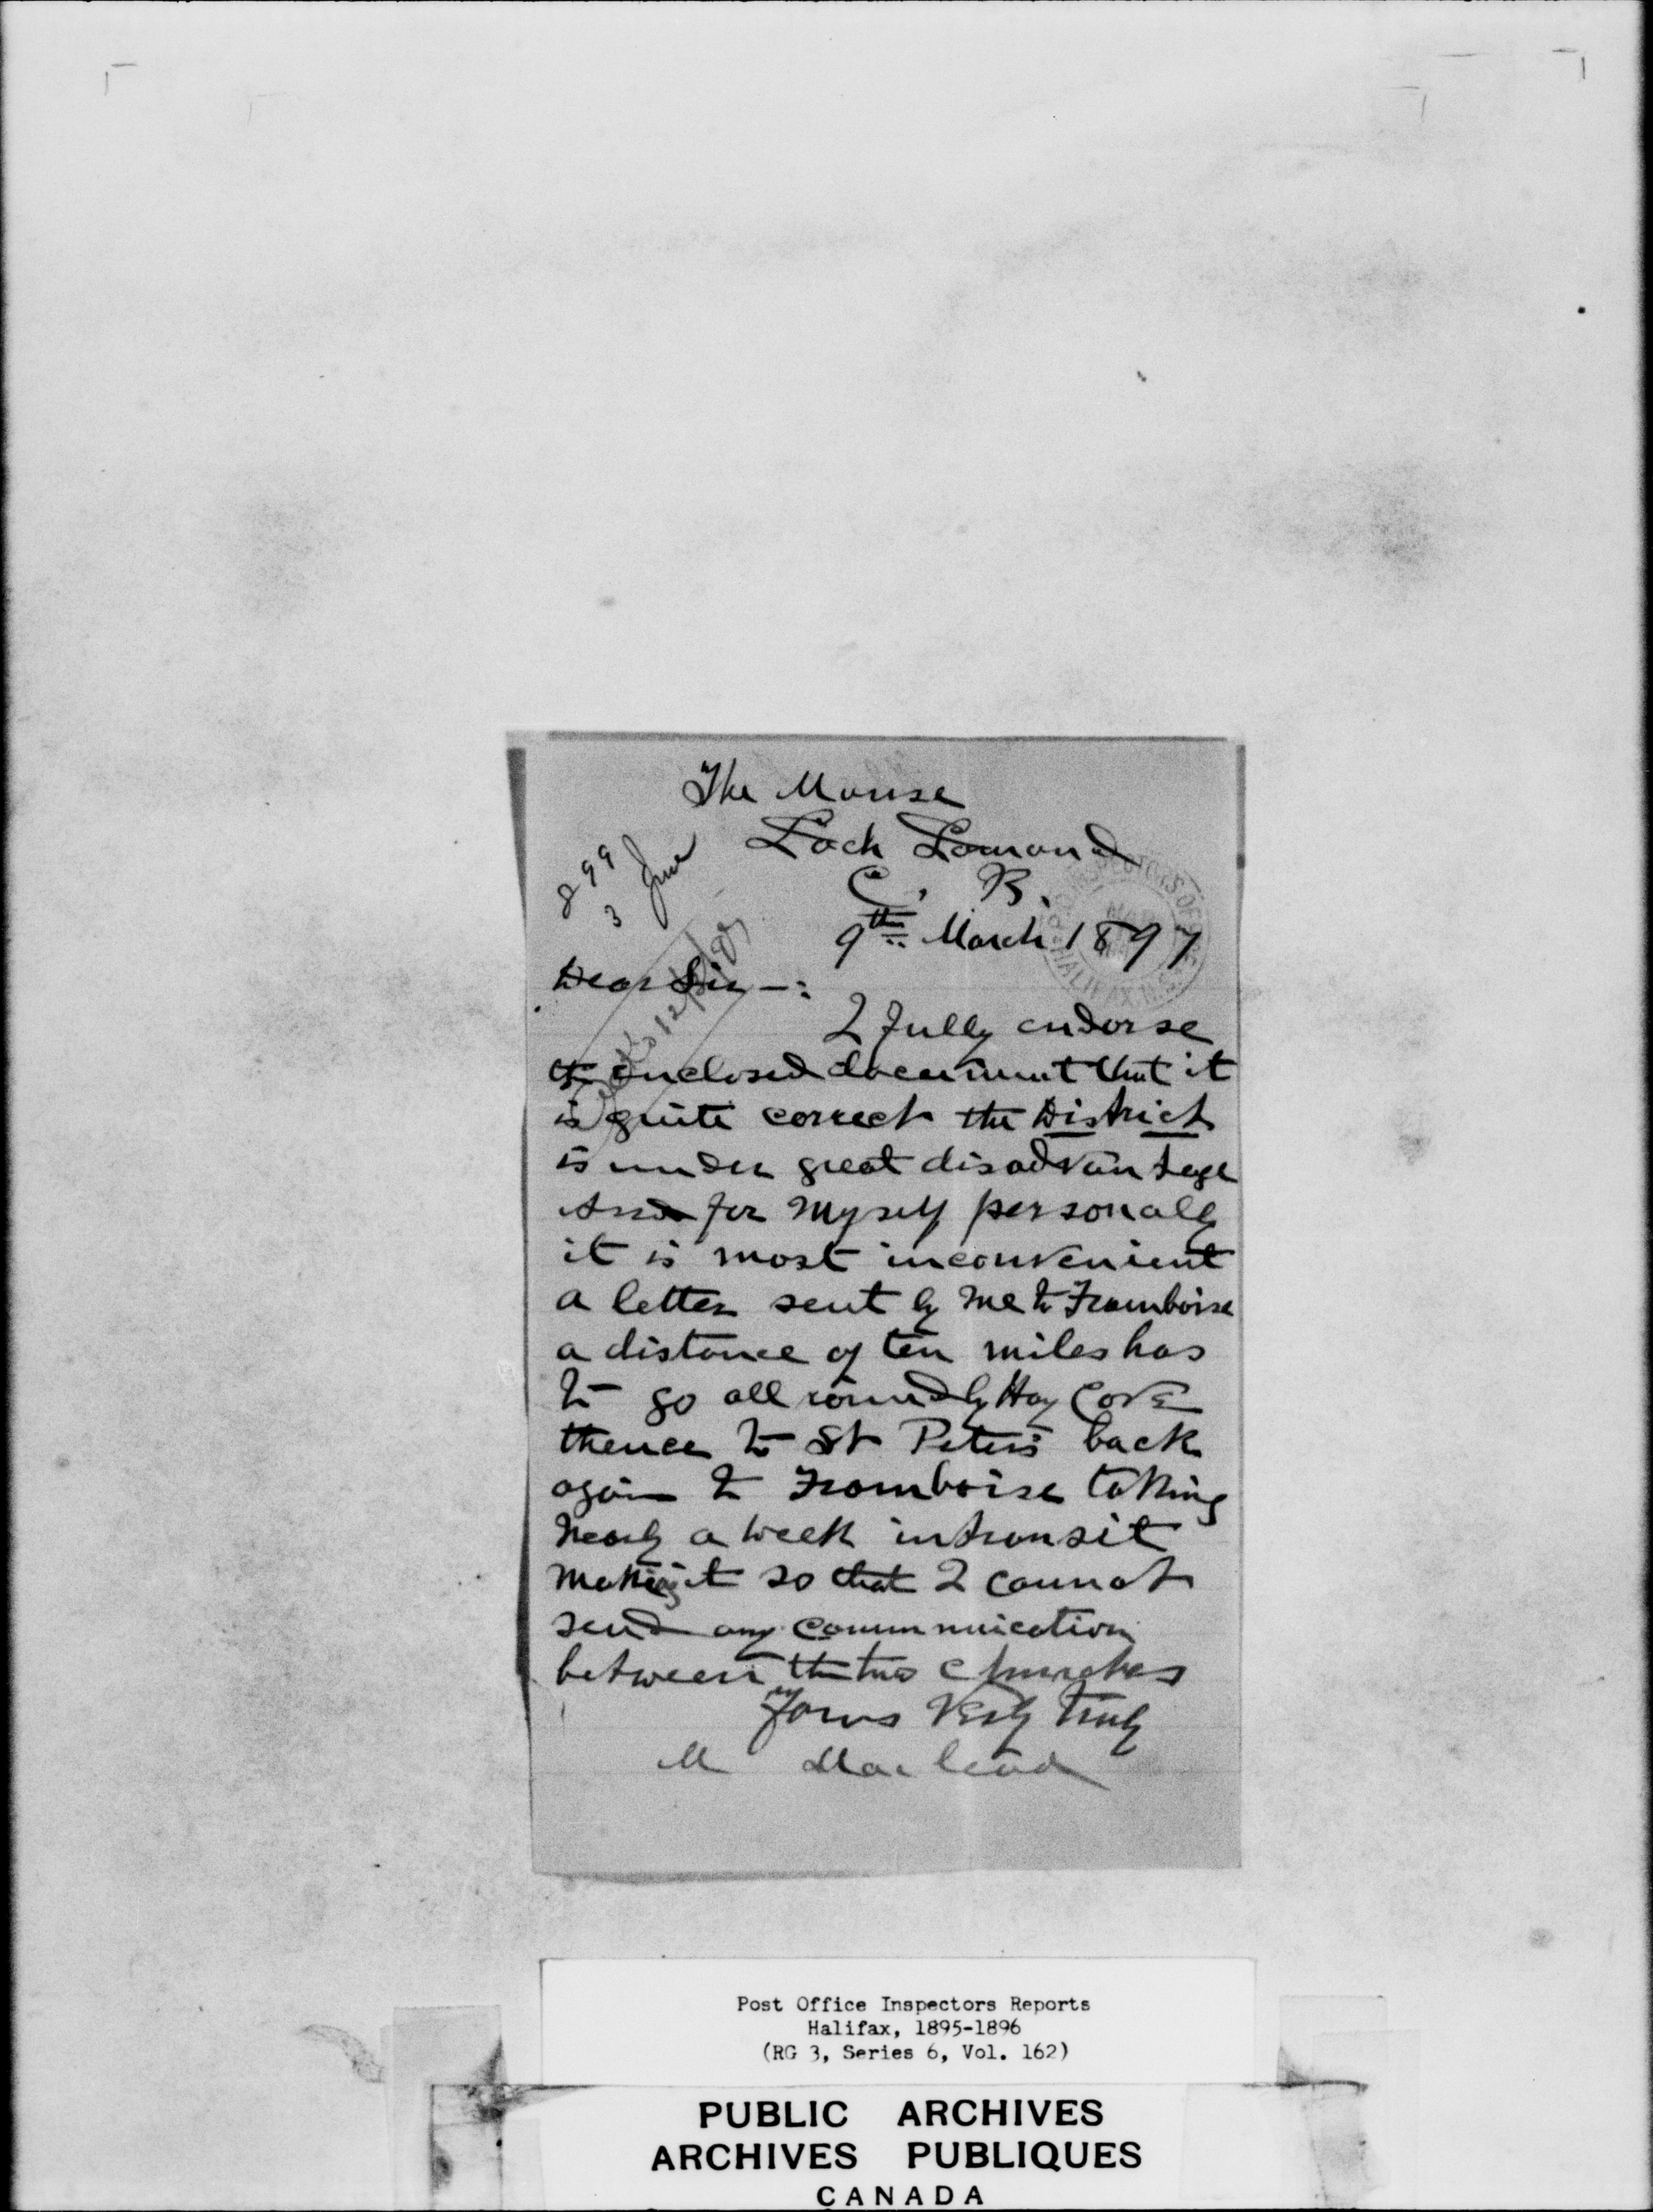 The Manse
Loch Lomond
C. B.
9th March 1897
899
3 June
Dear Sir —:
I fully endorse
the enclosed document that it
is quite correct the District
is under great disadvantage
And for myself personally
it is most inconvenient
a letter sent by me to Framboise
a distance of ten miles has
to go all round by Hay Cove
thence to St Peters back
again to Framboise taking
nearly a week in transit
making it so that I cannot
send any communication
between the two churches
Yours Very Truly
M MacLeod
Post Office Inspectors Reports
Halifax, 1895-1896
(RG 3, Series 6, Vol. 162)
PUBLIC ARCHIVES
ARCHIVES PUBLIQUES
CANADA